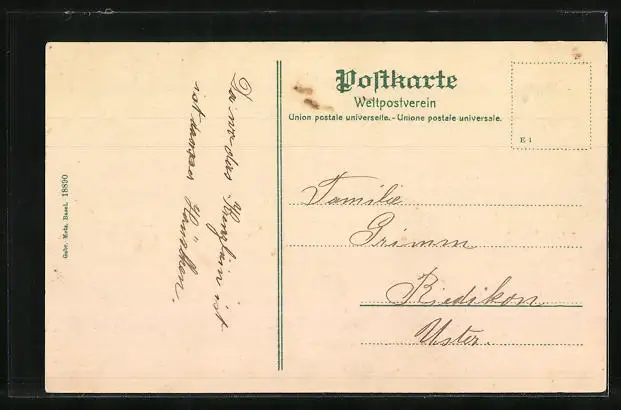 Da wo das Kreuzlein ist
ist unser Häuschen.
Gebr. Metz, Basel. 18890
Postkarte
Weltpostverein
Union postale universelle. - Unione postale universale.
E 1
Familie
Grimm
Riedikon
Uster.